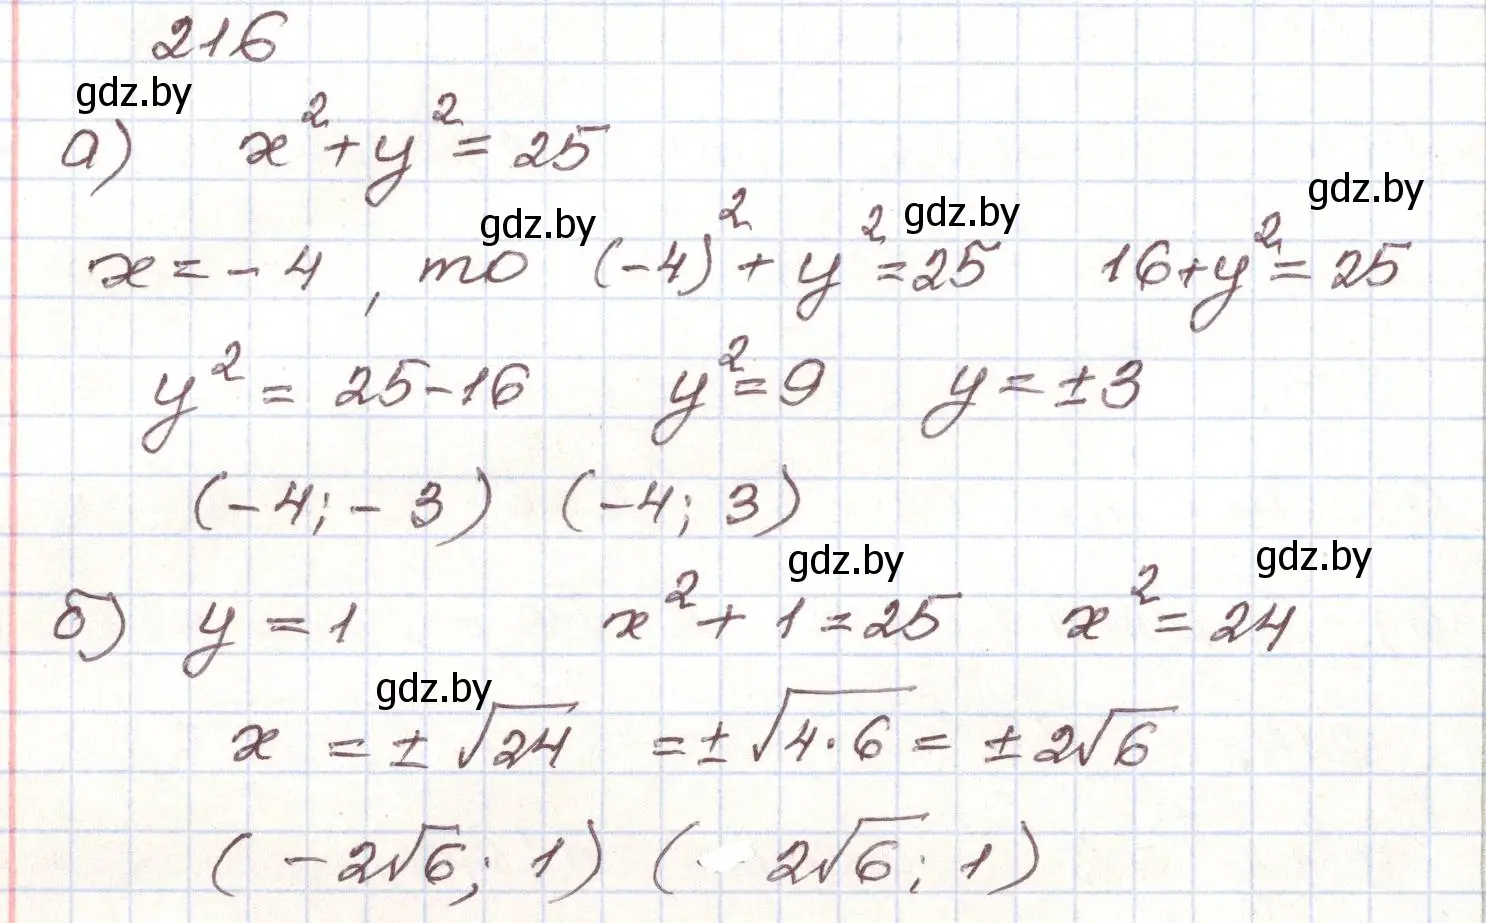 216
gdz.by
а) x² + y² = 25
gdz.by gdz.by gdz.by
x = -4, то (-4)² + y² = 25 16 + y² = 25
y² = 25 - 16 y² = 9 y = ±3
(-4; -3) (-4; 3)
gdz.by gdz.by
б) y = 1 x² + 1 = 25 x² = 24
gdz.by
x = ±√24 = ±√4·6 = ±2√6
(-2√6; 1) (2√6; 1)